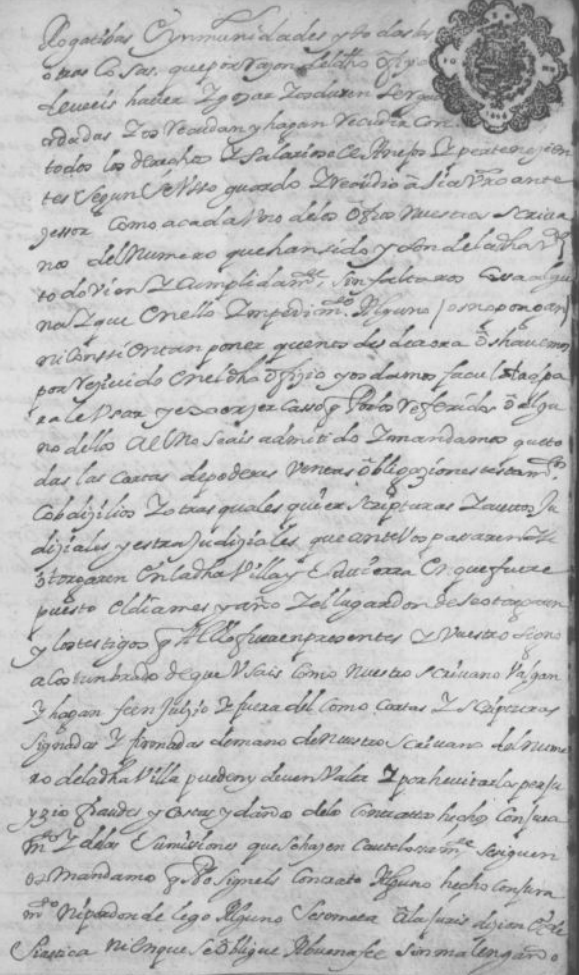 Rogatibas Eynmunidades y todas las
otras Cosas. que por rajon del dho ofiço
deveis haver Y gojar Y os
rdadas Y os Recudan y hagan Recudir Con
todos los derechos Y Salarios a el Anejos Y pertenezien
tes Segun Se Usso guardo Y recudio a Vro ante
zessor Como a cada Uno de los otros Nuestros Scriva
nos del Numero que han sido y son de la dha Va
todo Vien Y Cumplidamte, sin faltaros Cosa algu
na Y que en ello Ympedimto. Alguno / os no pongan /
ni Conssientan poner que nos desde aora os havemos
por Rejiuido en el dho ofizio y os damos facultad pa
ra le Usar y exerzer Casso q Por los referidos o algu
no dellos a el No Seais admitido Y mandamos que to
das las Cartas de poderes Ventas obligaziones testamtos,
Cobdizilios Y otras qualesquier Scripturas Y autos Ju
diziales y estra Judiziales que ante Vos pasaren Y se
otorgaren En la dha Villa y Su tierra En que fuere
puesto el dia mes y año Y el lugar donde se otorgaren
y los testigos q A ello fueren presentes Y Vuestro Signo
acostumbrado de que Usais Como nuestro scrivano Valgan
Y hagan fee en Juizio Y fuera del Como Cartas Y Scripturas
Signadas Y firmadas de mano de Nuestro Scrivano del Nume
ro de la dha Villa pueden y deven Valer Y por hevitar los perju
yzios fraudes y Costas y daños de los Contratos hechos Con jura
mto Y de las Sumisiones que se hazen Cautelossamte se siguen
os Mandamos q No Signeis Contrato Alguno hecho Con jura
mto Ni por donde lego Alguno Se someta a la jurisdizion Ecle
siastica Ni En que Se oblige A buena fee sin mal engaño